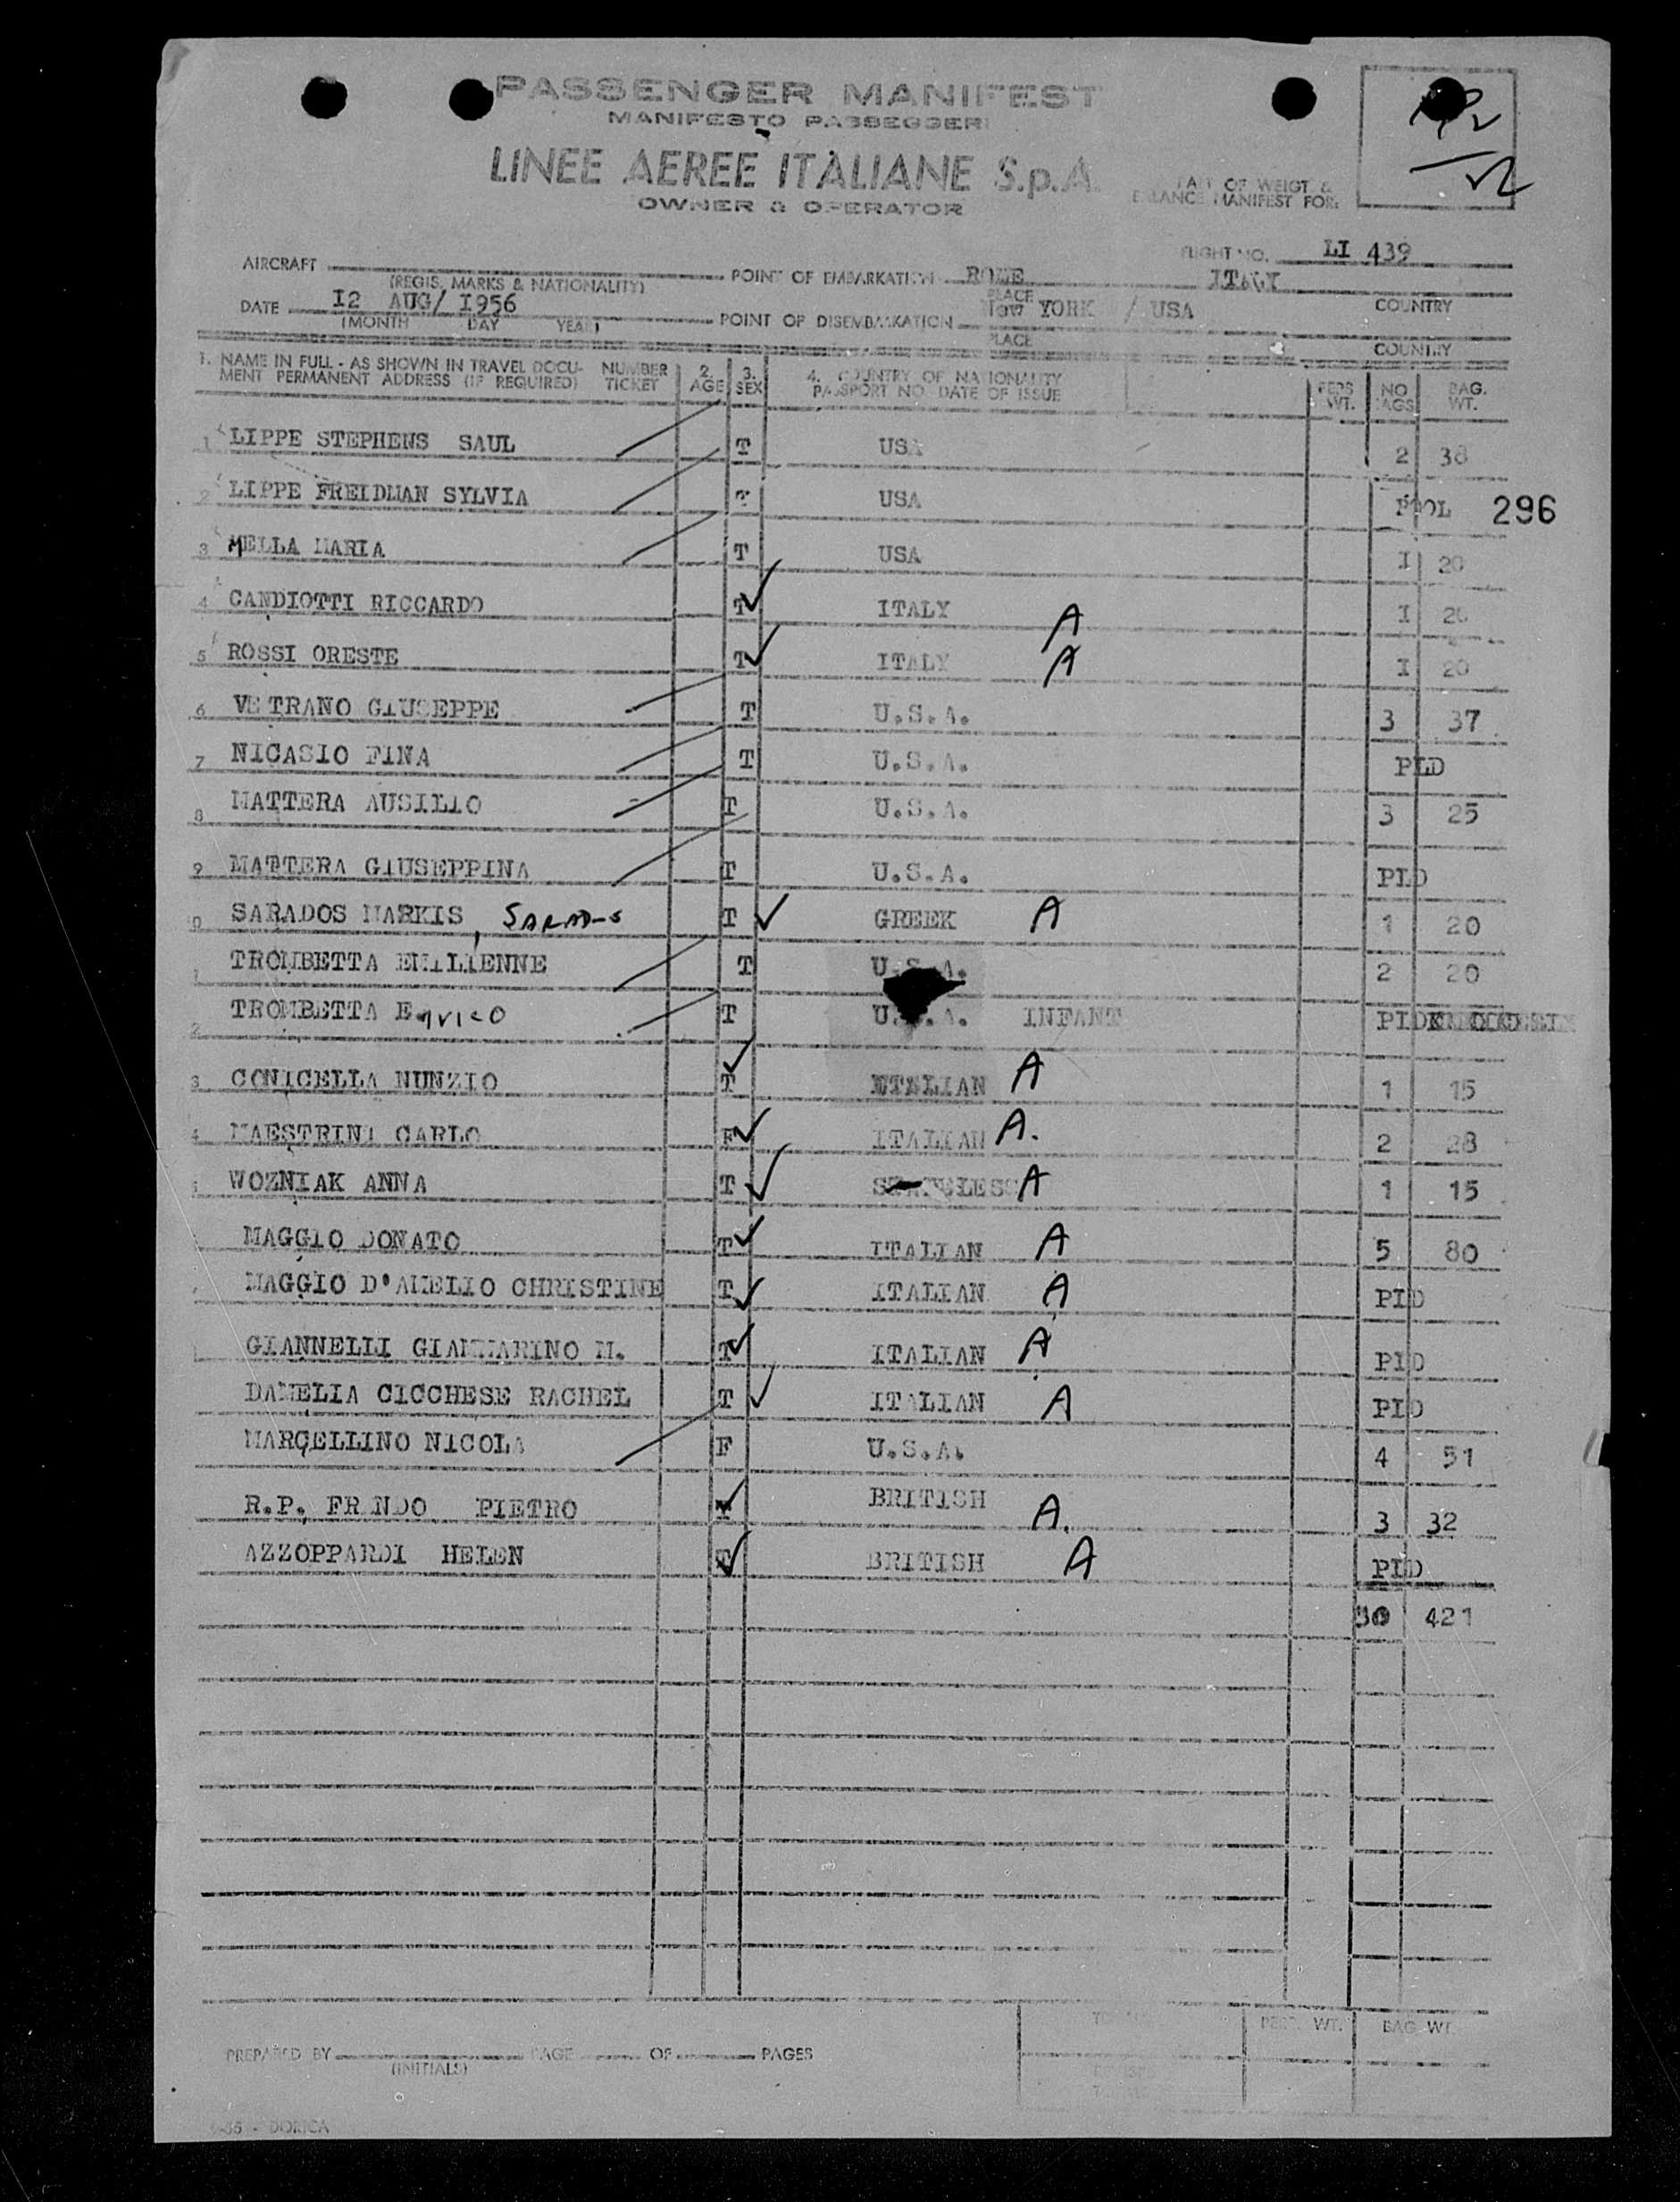 PASSENGER MANIFEST
MANIFESTO PASSEGGERI
LINEE AEREE ITALIANE S.p.A.
OWNER & OPERATOR
PART OF WEIGT &
BALANCE MANIFEST FOR:
FLIGHT NO. LI 439
AIRCRAFT POINT OF EMBARKATION ROME ITALY
(REGIS. MARKS & NATIONALITY) PLACE COUNTRY
DATE I2 AUG/ I956 POINT OF DISEMBARKATION New YORK / USA
(MONTH DAY YEAR) PLACE COUNTRY
1. NAME IN FULL - AS SHOWN IN TRAVEL DOCU- NUMBER 2. 3. 4. COUNTRY OF NATIONALITY PERS NO BAG.
MENT PERMANENT ADDRESS (IF REQUIRED) TICKET AGE SEX PASSPORT NO. DATE OF ISSUE WT. BAGS WT.
1 LIPPE STEPHENS SAUL T USA 2 38
2 LIPPE FREIDMAN SYLVIA T USA POOL 296
3 MELLA MARIA T USA I 20
4 CANDIOTTI RICCARDO T ITALY A I 20
5 ROSSI ORESTE T ITALY A I 20
6 VETRANO GIUSEPPE T U.S.A. 3 37
7 NICASIO FINA T U.S.A. PLD
8 MATTERA AUSILIO T U.S.A. 3 25
9 MATTERA GIUSEPPINA T U.S.A. PLD
0 SARADOS MARKIS, T GREEK A 1 20
1 TROMBETTA EMILIENNE T U.S.A. 2 20
2 TROMBETTA Enrico T U.S.A. INFANT PID
3 CONICELLA NUNZIO T ITALIAN A 1 15
4 MAESTRINI CARLO F ITALIAN A. 2 28
5 WOZNIAK ANNA T STATELESS A 1 15
MAGGIO DONATO T ITALIAN A 5 80
MAGGIO D'AMELIO CHRISTINE T ITALIAN A PID
GIANNELLI GIANMARINO M. T ITALIAN A PID
DAMELIA CICCHESE RACHEL T ITALIAN A PID
MARCELLINO NICOLA F U.S.A. 4 51
R.P. PIETRO BRITISH A. 3 32
AZZOPPARDI HELEN T BRITISH A PID
30 421
PREPARED BY PAGE OF PAGES
(INITIALS)
PERS. WT. BAG WT.
DORICA